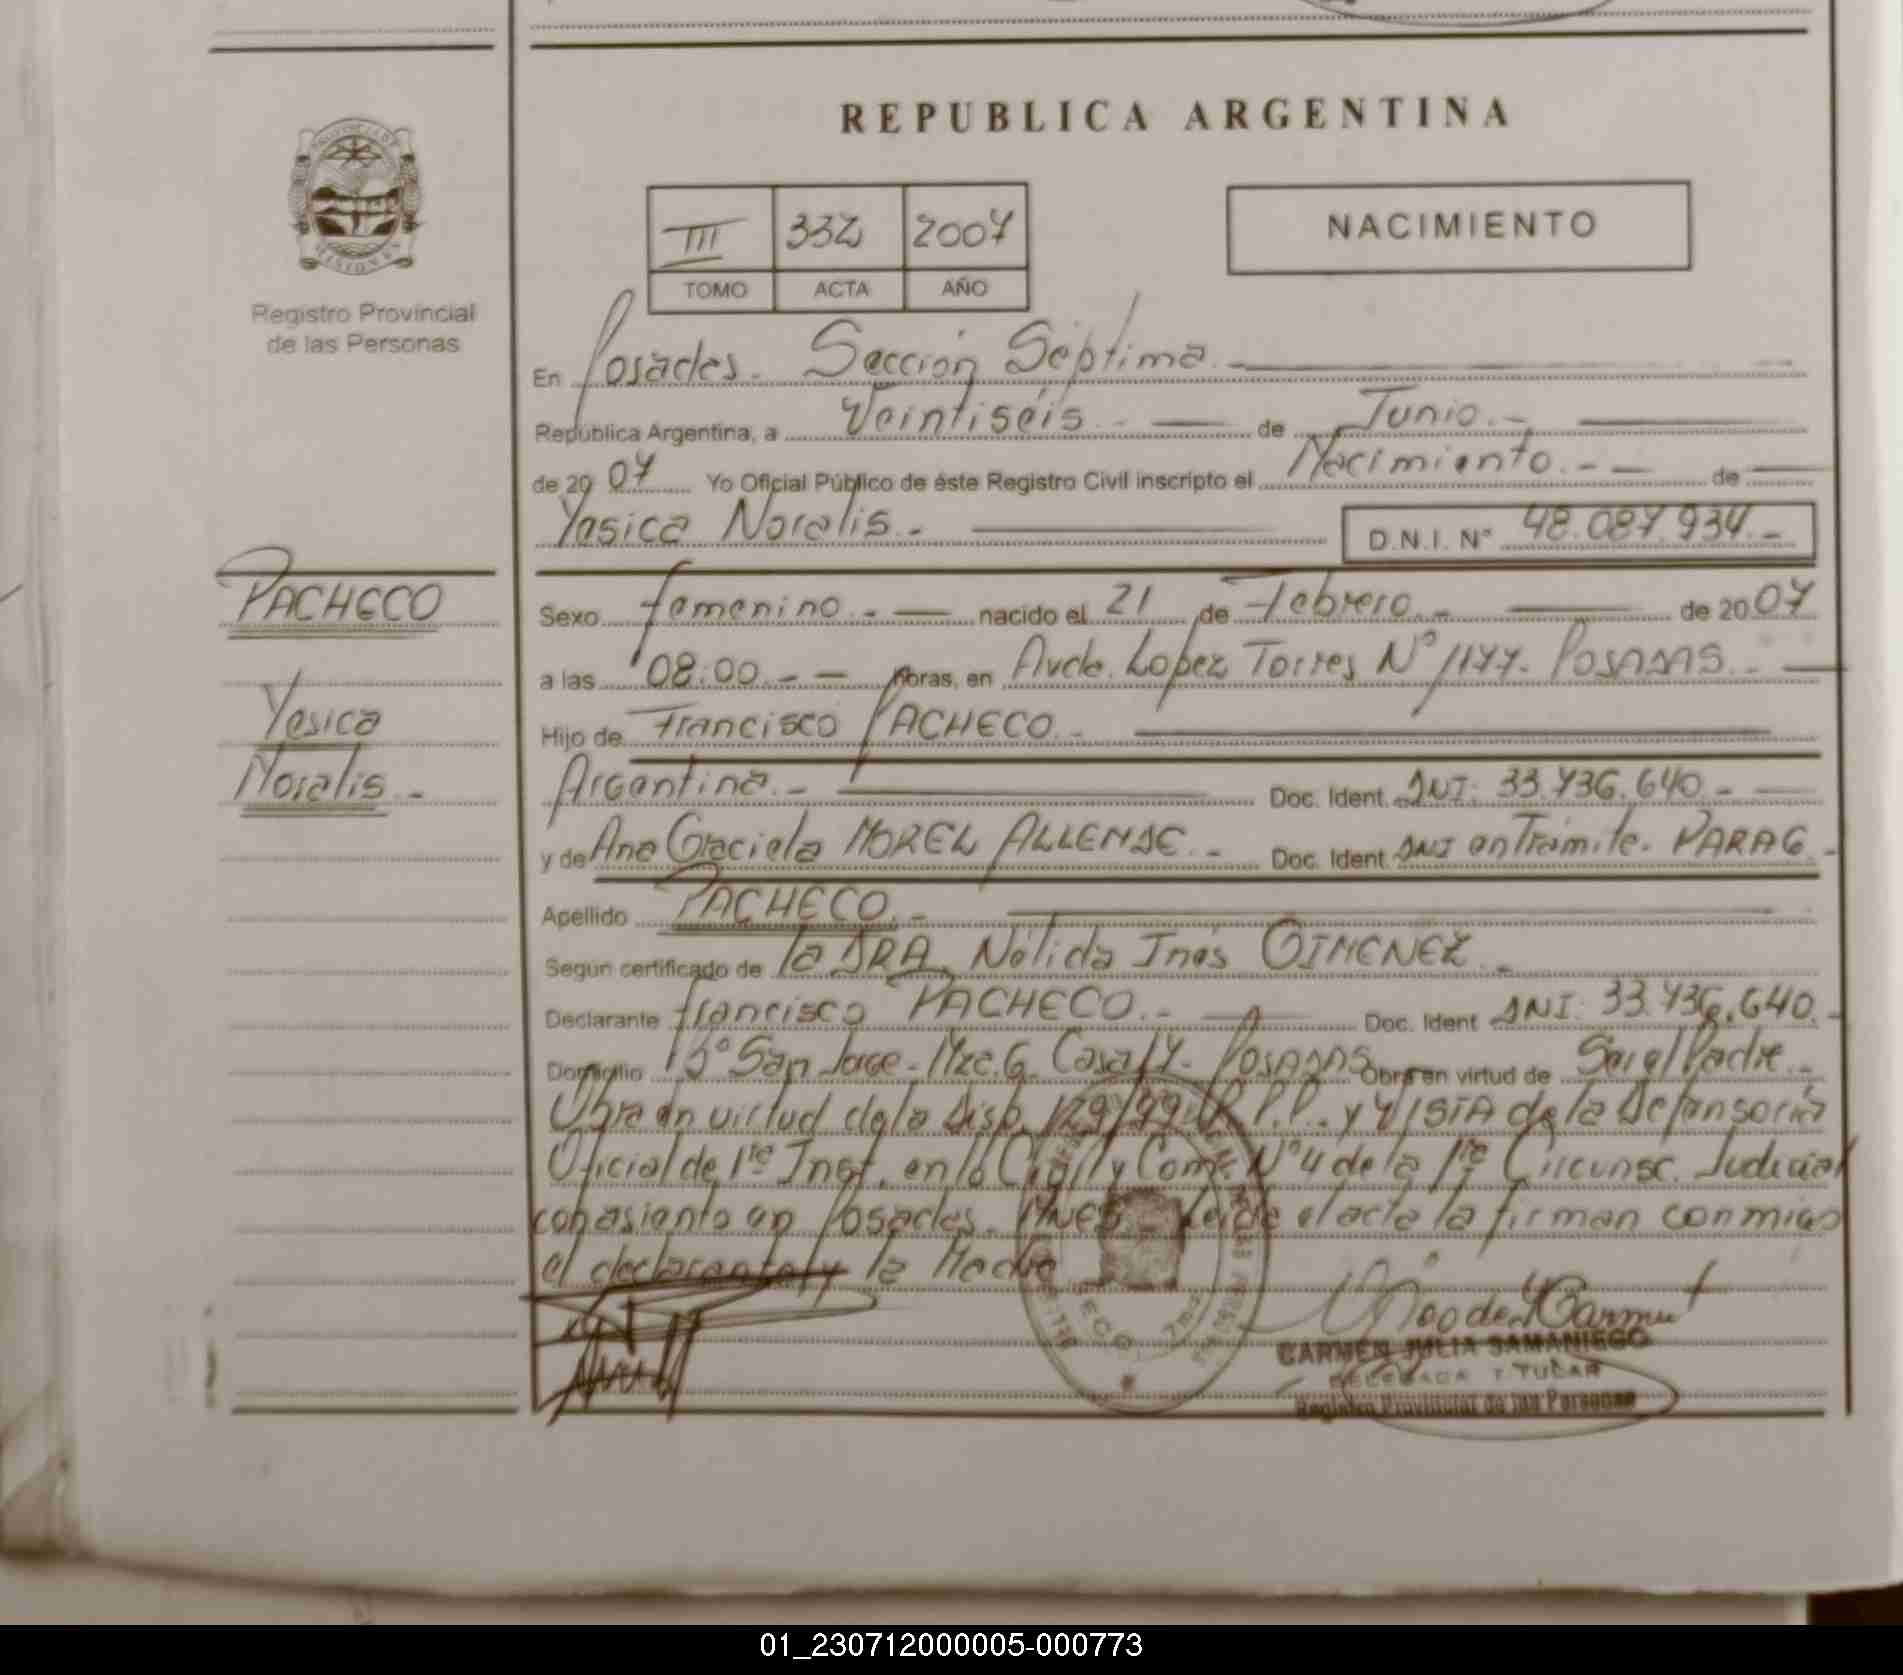 REPUBLICA ARGENTINA
III 332 2007
TOMO ACTA AÑO
NACIMIENTO
Registro Provincial
de las Personas
En Posadas. Sección Séptima.
República Argentina, a Veintiséis. - de Junio. -
de 20 07 Yo Oficial Público de éste Registro Civil inscripto el Nacimiento. - - de
Yesica Noralis. - D.N.I. Nº 48.087.934. -
PACHECO
Yesica
Noralis. -
Sexo femenino. - nacido el 21 de Febrero. - de 20 07
a las 08:00. - - horas, en Avda. Lopez Torres Nº 1177. POSADAS. -
Hijo de Francisco PACHECO. -
Argentina. - Doc. Ident. DNI: 33.736.640. -
y de Ana Graciela MOREL ALLENDE. - Doc. Ident. DNI en Trámite. PARAG. -
Apellido PACHECO. -
Según certificado de la DRA. Nélida Inés GIMENEZ. -
Declarante Francisco PACHECO. - Doc. Ident DNI: 33.736.640. -
Domicilio Bº San Jorge - Mzc. G. Casa 17. POSADAS Obra en virtud de Ser el Padre. -
Obra en virtud de la Disp. 129/99 R.P.P. y VISTA de la Defensoría
Oficial de 1ra Inst. en lo Civil y Com. Nº 4 de la 1ra Circunsc. Judicial
con asiento en Posadas. Mnes. Leída el acta la firman conmigo
el declarante y la Madre
CARMEN JULIA SAMANIEGO
DELEGADA TITULAR
Registro Provincial de las Personas
01_230712000005-000773